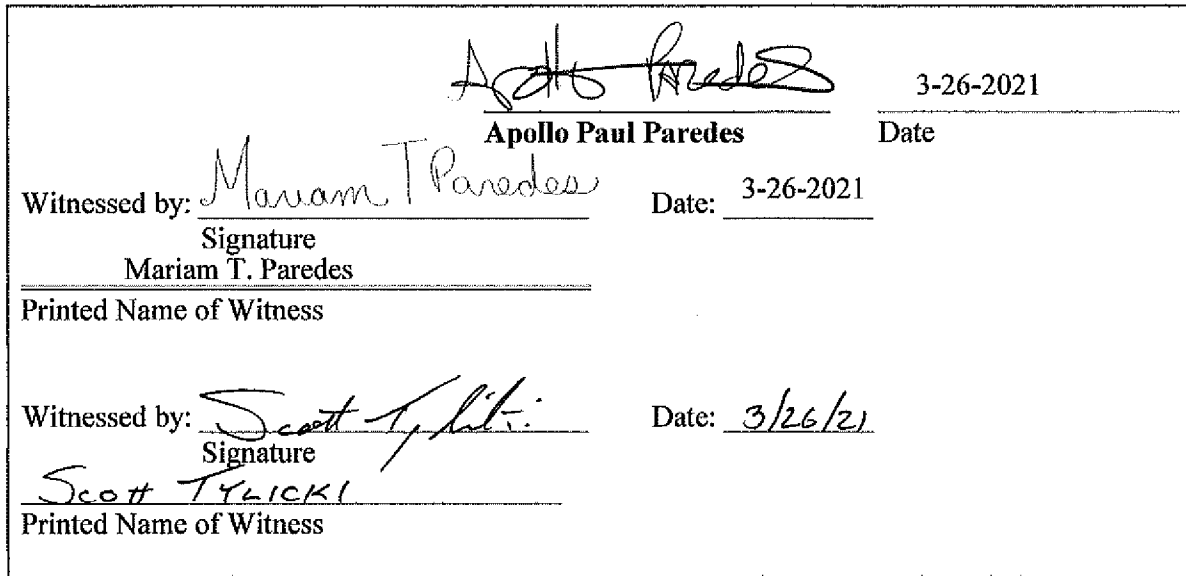 Apollo Paredes 3-26-2021
Apollo Paul Paredes Date
Witnessed by: Mariam T Paredes Date: 3-26-2021
Signature
Mariam T. Paredes
Printed Name of Witness
Witnessed by: Scott Tylicki Date: 3/26/21
Signature
Scott TYLICKI
Printed Name of Witness